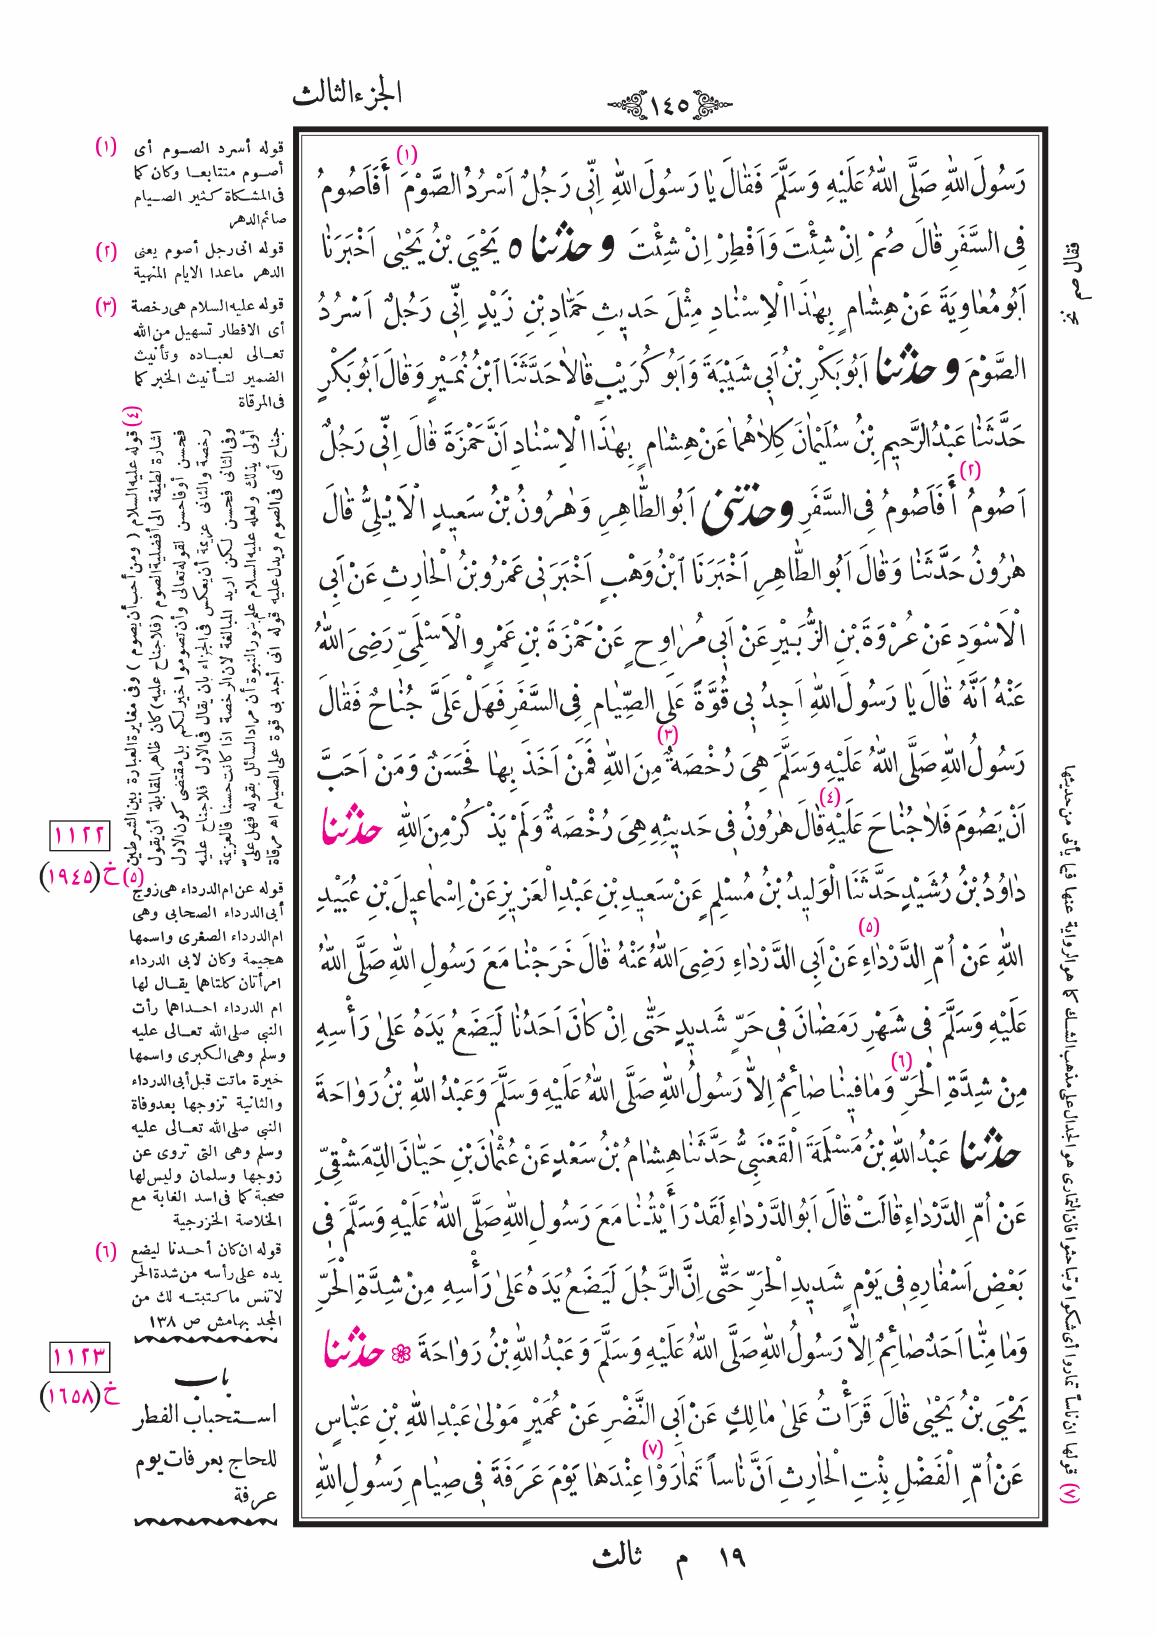 الجزء الثالث
١٤٥
رَسُولَ اللهِ صَلَّى اللهُ عَلَيْهِ وَسَلَّمَ فَقَالَ يَا رَسُولَ اللهِ اِنِّي رَجُلٌ اَسْرُدُ الصَّوْمَ (١) أَفَاَصُومُ
فِى السَّفَرِ قَالَ صُمْ اِنْ شِئْتَ وَاَفْطِرْ اِنْ شِئْتَ وحدثنا ٥ يَحْيَى بْنُ يَحْيٰى اَخْبَرَنَا
اَبُو مُعَاوِيَةَ عَنْ هِشَامٍ بِهٰذَا الْاِسْنَادِ مِثْلَ حَديثِ حَمَّادِ بْنِ زَيْدٍ اِنِّي رَجُلٌ اَسْرُدُ
الصَّوْمَ وحدثنا اَبُو بَكْرِ بْنُ اَبِي شَيْبَةَ وَاَبُو كُرَيْبٍ قَالاَ حَدَّثَنَا ابْنُ نُمَيْرٍ وَقَالَ اَبُو بَكْرٍ
حَدَّثَنَا عَبْدُ الرَّحيمِ بْنُ سُلَيْمَانَ كِلاَهُمَا عَنْ هِشَامٍ بِهٰذَا الْاِسْنَادِ اَنَّ حَمْزَةَ قَالَ اِنِّي رَجُلٌ
اَصُومُ (٢) أَفَاَصُومُ فِى السَّفَرِ وحدثنى اَبُو الطَّاهِرِ وَهٰرُونُ بْنُ سَعيدٍ الْاَيْلِيُّ قَالَ
هٰرُونُ حَدَّثَنَا وَقَالَ اَبُو الطَّاهِرِ اَخْبَرَنَا ابْنُ وَهْبٍ اَخْبَرَنِي عَمْرُو بْنُ الْحَارِثِ عَنْ اَبِي
الْاَسْوَدِ عَنْ عُرْوَةَ بْنِ الزُّبَيْرِ عَنْ اَبِي مُرَاوِحٍ عَنْ حَمْزَةَ بْنِ عَمْرٍو الْاَسْلَمِيِّ رَضِىَ اللهُ
عَنْهُ اَنَّهُ قَالَ يَا رَسُولَ اللهِ اَجِدُ بِي قُوَّةً عَلَى الصِّيَامِ فِى السَّفَرِ فَهَلْ عَلَىَّ جُنَاحٌ فَقَالَ
رَسُولُ اللهِ صَلَّى اللهُ عَلَيْهِ وَسَلَّمَ هِىَ رُخْصَةٌ (٣) مِنَ اللهِ فَمَنْ اَخَذَ بِهَا فَحَسَنٌ وَمَنْ اَحَبَّ
اَنْ يَصُومَ فَلاَ جُنَاحَ عَلَيْهِ (٤) قَالَ هٰرُونُ فِي حَديثِهِ هِىَ رُخْصَةٌ وَلَمْ يَذْكُرْ مِنَ اللهِ حدثنا
دَاوُدُ بْنُ رُشَيْدٍ حَدَّثَنَا الْوَليدُ بْنُ مُسْلِمٍ عَنْ سَعيدِ بْنِ عَبْدِ الْعَزيزِ عَنْ اِسْمَاعيلَ بْنِ عُبَيْدِ
اللهِ عَنْ اُمِّ الدَّرْدَاءِ (٥) عَنْ اَبِي الدَّرْدَاءِ رَضِىَ اللهُ عَنْهُ قَالَ خَرَجْنَا مَعَ رَسُولِ اللهِ صَلَّى اللهُ
عَلَيْهِ وَسَلَّمَ فِي شَهْرِ رَمَضَانَ فِي حَرٍّ شَديدٍ حَتّٰى اِنْ كَانَ اَحَدُنَا لَيَضَعُ يَدَهُ عَلىٰ رَأْسِهِ
مِنْ شِدَّةِ الْحَرِّ (٦) وَمَا فِينَا صَائِمٌ اِلاَّ رَسُولُ اللهِ صَلَّى اللهُ عَلَيْهِ وَسَلَّمَ وَعَبْدُ اللهِ بْنُ رَوَاحَةَ
حدثنا عَبْدُ اللهِ بْنُ مَسْلَمَةَ الْقَعْنَبِيُّ حَدَّثَنَا هِشَامُ بْنُ سَعْدٍ عَنْ عُثْمَانَ بْنِ حَيَّانَ الدِّمَشْقِيِّ
عَنْ اُمِّ الدَّرْدَاءِ قَالَتْ قَالَ اَبُو الدَّرْدَاءِ لَقَدْ رَأَيْتُنَا مَعَ رَسُولِ اللهِ صَلَّى اللهُ عَلَيْهِ وَسَلَّمَ فِي
بَعْضِ اَسْفَارِهِ فِي يَوْمٍ شَديدِ الْحَرِّ حَتّٰى اِنَّ الرَّجُلَ لَيَضَعُ يَدَهُ عَلىٰ رَأْسِهِ مِنْ شِدَّةِ الْحَرِّ
وَمَا مِنَّا اَحَدٌ صَائِمٌ اِلاَّ رَسُولُ اللهِ صَلَّى اللهُ عَلَيْهِ وَسَلَّمَ وَعَبْدُ اللهِ بْنُ رَوَاحَةَ ❁ حدثنا
يَحْيَى بْنُ يَحْيٰى قَالَ قَرَأْتُ عَلىٰ مَالِكٍ عَنْ اَبِي النَّضْرِ عَنْ عُمَيْرٍ مَوْلىٰ عَبْدِ اللهِ بْنِ عَبَّاسٍ
عَنْ اُمِّ الْفَضْلِ بِنْتِ الْحَارِثِ اَنَّ نَاساً تَمَارَوْا (٧) عِنْدَهَا يَوْمَ عَرَفَةَ فِي صِيَامِ رَسُولِ اللهِ
(١) قوله أسرد الصوم أى
أصوم متتابعا وكان كما
فى المشكاة كثير الصيام
صائم الدهر
(٢) قوله انى رجل أصوم يعنى
الدهر ماعدا الايام المنهية
(٣) قوله عليه السلام هى رخصة
أى الافطار تسهيل من الله
تعالى لعباده وتأنيث
الضمير لتأنيث الخبر كما
فى المرقاة
(٤) قوله عليه السلام (ومن أحب أن يصوم) وفى مغايرة العبارة بين الشرطين
اشارة لطيفة الى أفضلية الصوم (فلا جناح عليه) كان ظاهر المقابلة أن يقول
فحسن أو فأحسن لقوله تعالى وأن تصوموا خير لكم بل مقتضى كون الاول
رخصة والثانى عزيمة أن يعكس فى الجزاء بان يقال فى الاول فلا جناح عليه
وفى الثانى فحسن لكن اريد المبالغة لان الرخصة اذا كانت حسنا فالعزيمة
أولى بذلك ولعله عليه السلام علم بنور النبوة أن مراد السائل بقوله فهل علىّ
جناح أى فى الصوم ويدل عليه قوله انى أجد بى قوة على الصيام اه مرقاة
١١٢٢
خ (١٩٤٥)
(٥) قوله عن ام الدرداء هى زوج
أبى الدرداء الصحابى وهى
ام الدرداء الصغرى واسمها
هجيمة وكان لابى الدرداء
امرأتان كلتاهما يقال لها
ام الدرداء احداهما رأت
النبى صلى الله تعالى عليه
وسلم وهى الكبرى واسمها
خيرة ماتت قبل أبى الدرداء
والثانية تزوجها بعد وفاة
النبى صلى الله تعالى عليه
وسلم وهى التى تروى عن
زوجها وسلمان وليس لها
صحبة كما فى اسد الغابة مع
الخلاصة الخزرجية
(٦) قوله ان كان أحدنا ليضع
يده على رأسه من شدة الحر
لا تنس ما كتبته لك من
المجد بهامش ص ١٣٨
١١٢٣
خ (١٦٥٨)
باب
استحباب الفطر
للحاج بعرفات يوم
عرفة
(٧) قولها ان ناساً تماروا أى شكوا وتباحثوا فان التمارى هو الجدال على مذهب الشك كما هو الرواية عنها فيما يأتى من حديثها
١٩ م ثالث